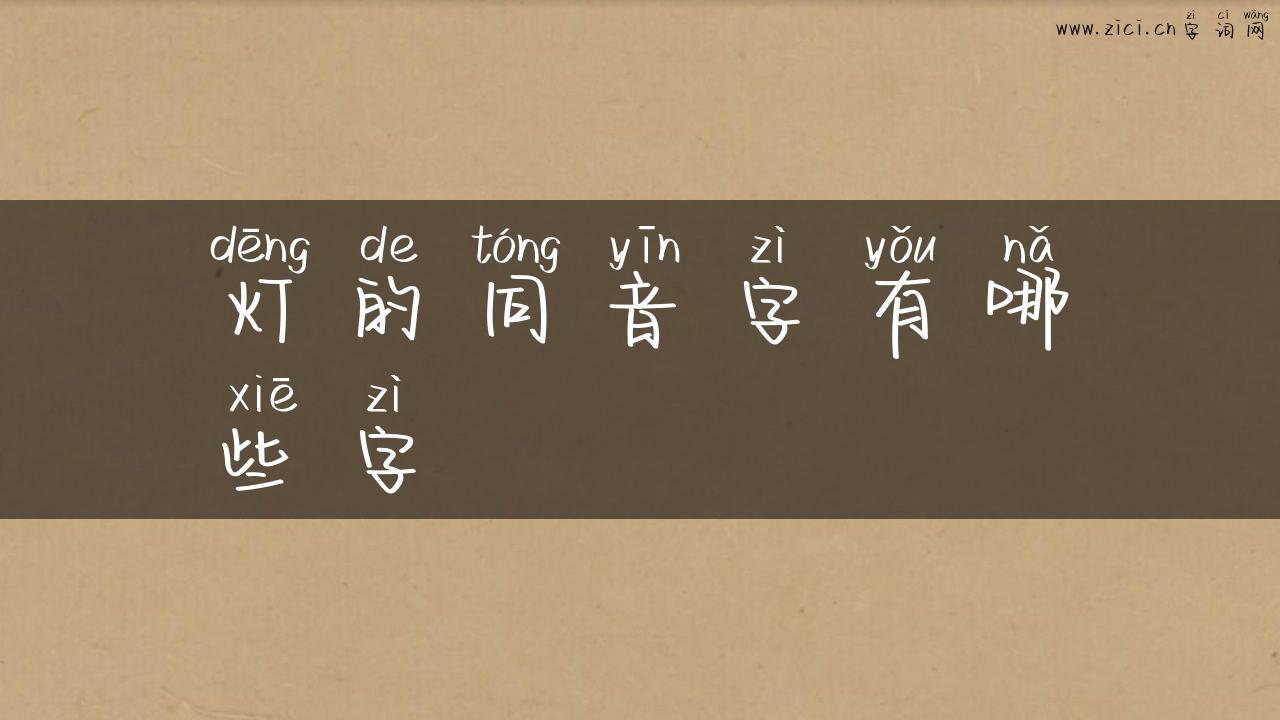 zì cí wǎng
www.zici.cn 字 词 网
dēng de tóng yīn zì yǒu nǎ
灯 的 同 音 字 有 哪
xiē zì
些 字